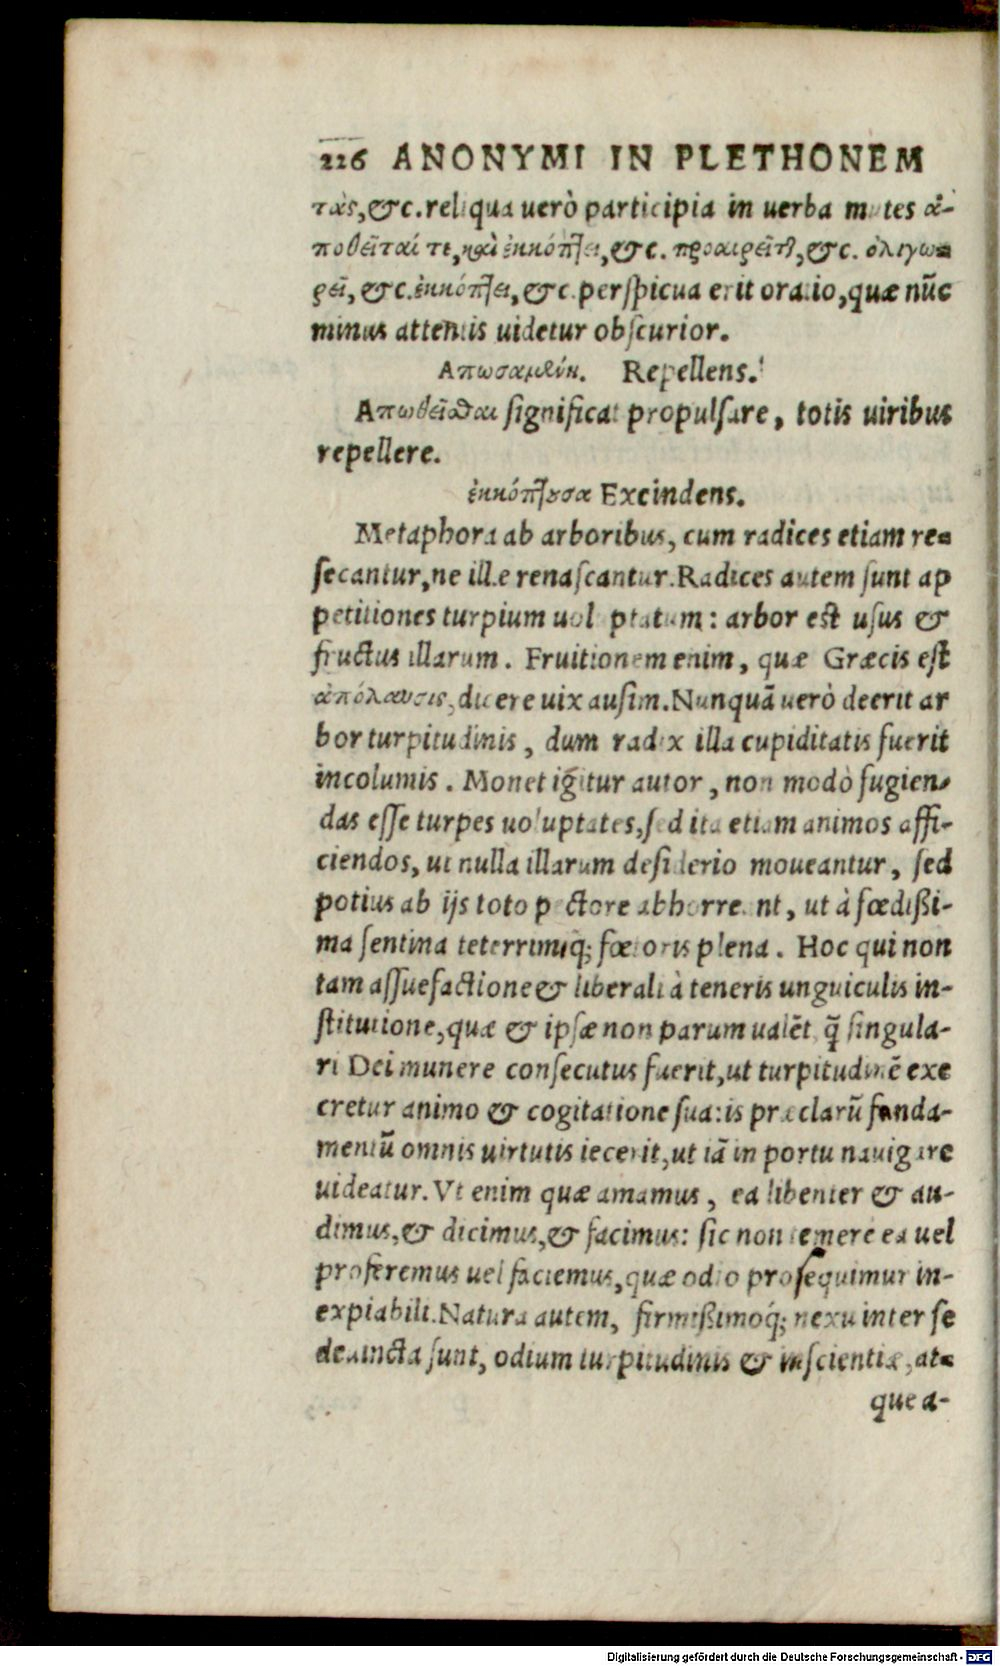 226 ANONYMI IN PLETHONEM
τὰς, &c. reliqua uerò participia in uerba mutes ἀ-
ποθεῖταί τε, καὶ ἐκκόπτει, &c. προαιρεῖται, &c. ὀλιγω-
ρεῖ, &c. ἐκκόπτει, &c. perspicua erit oratio, quæ nūc
minus attentis uidetur obscurior.
Απωσαμένη. Repellens.
Απωθεῖσθαι significat propulsare, totis uiribus
repellere.
ἐκκόπτουσα Excindens.
Metaphora ab arboribus, cum radices etiam re-
secantur, ne illæ renascantur. Radices autem sunt ap
petitiones turpium uoluptatum: arbor est usus &
fructus illarum. Fruitionem enim, quæ Græcis est
ἀπόλαυσις, dicere uix ausim. Nunquā uerò deerit ar
bor turpitudinis, dum radix illa cupiditatis fuerit
incolumis. Monet igitur autor, non modò fugien-
das esse turpes uoluptates, sed ita etiam animos affi-
ciendos, ut nulla illarum desiderio moueantur, sed
potius ab ijs toto pectore abhorreant, ut à fœdißi-
ma sentina teterrimiq; fœtoris plena. Hoc qui non
tam assuefactione & liberali à teneris unguiculis in-
stitutione, quæ & ipsæ non parum ualēt, q̄ singula-
ri Dei munere consecutus fuerit, ut turpitudinē exe
cretur animo & cogitatione sua: is præclarū funda-
mentū omnis uirtutis iecerit, ut iā in portu nauigare
uideatur. Vt enim quæ amamus, ea libenter & au-
dimus, & dicimus, & facimus: sic non temere ea uel
proferemus uel faciemus, quæ odio prosequimur in-
expiabili. Natura autem, firmißimoq́; nexu inter se
deuincta sunt, odium turpitudinis & inscientiæ, at-
que a-
Digitalisierung gefördert durch die Deutsche Forschungsgemeinschaft - DFG